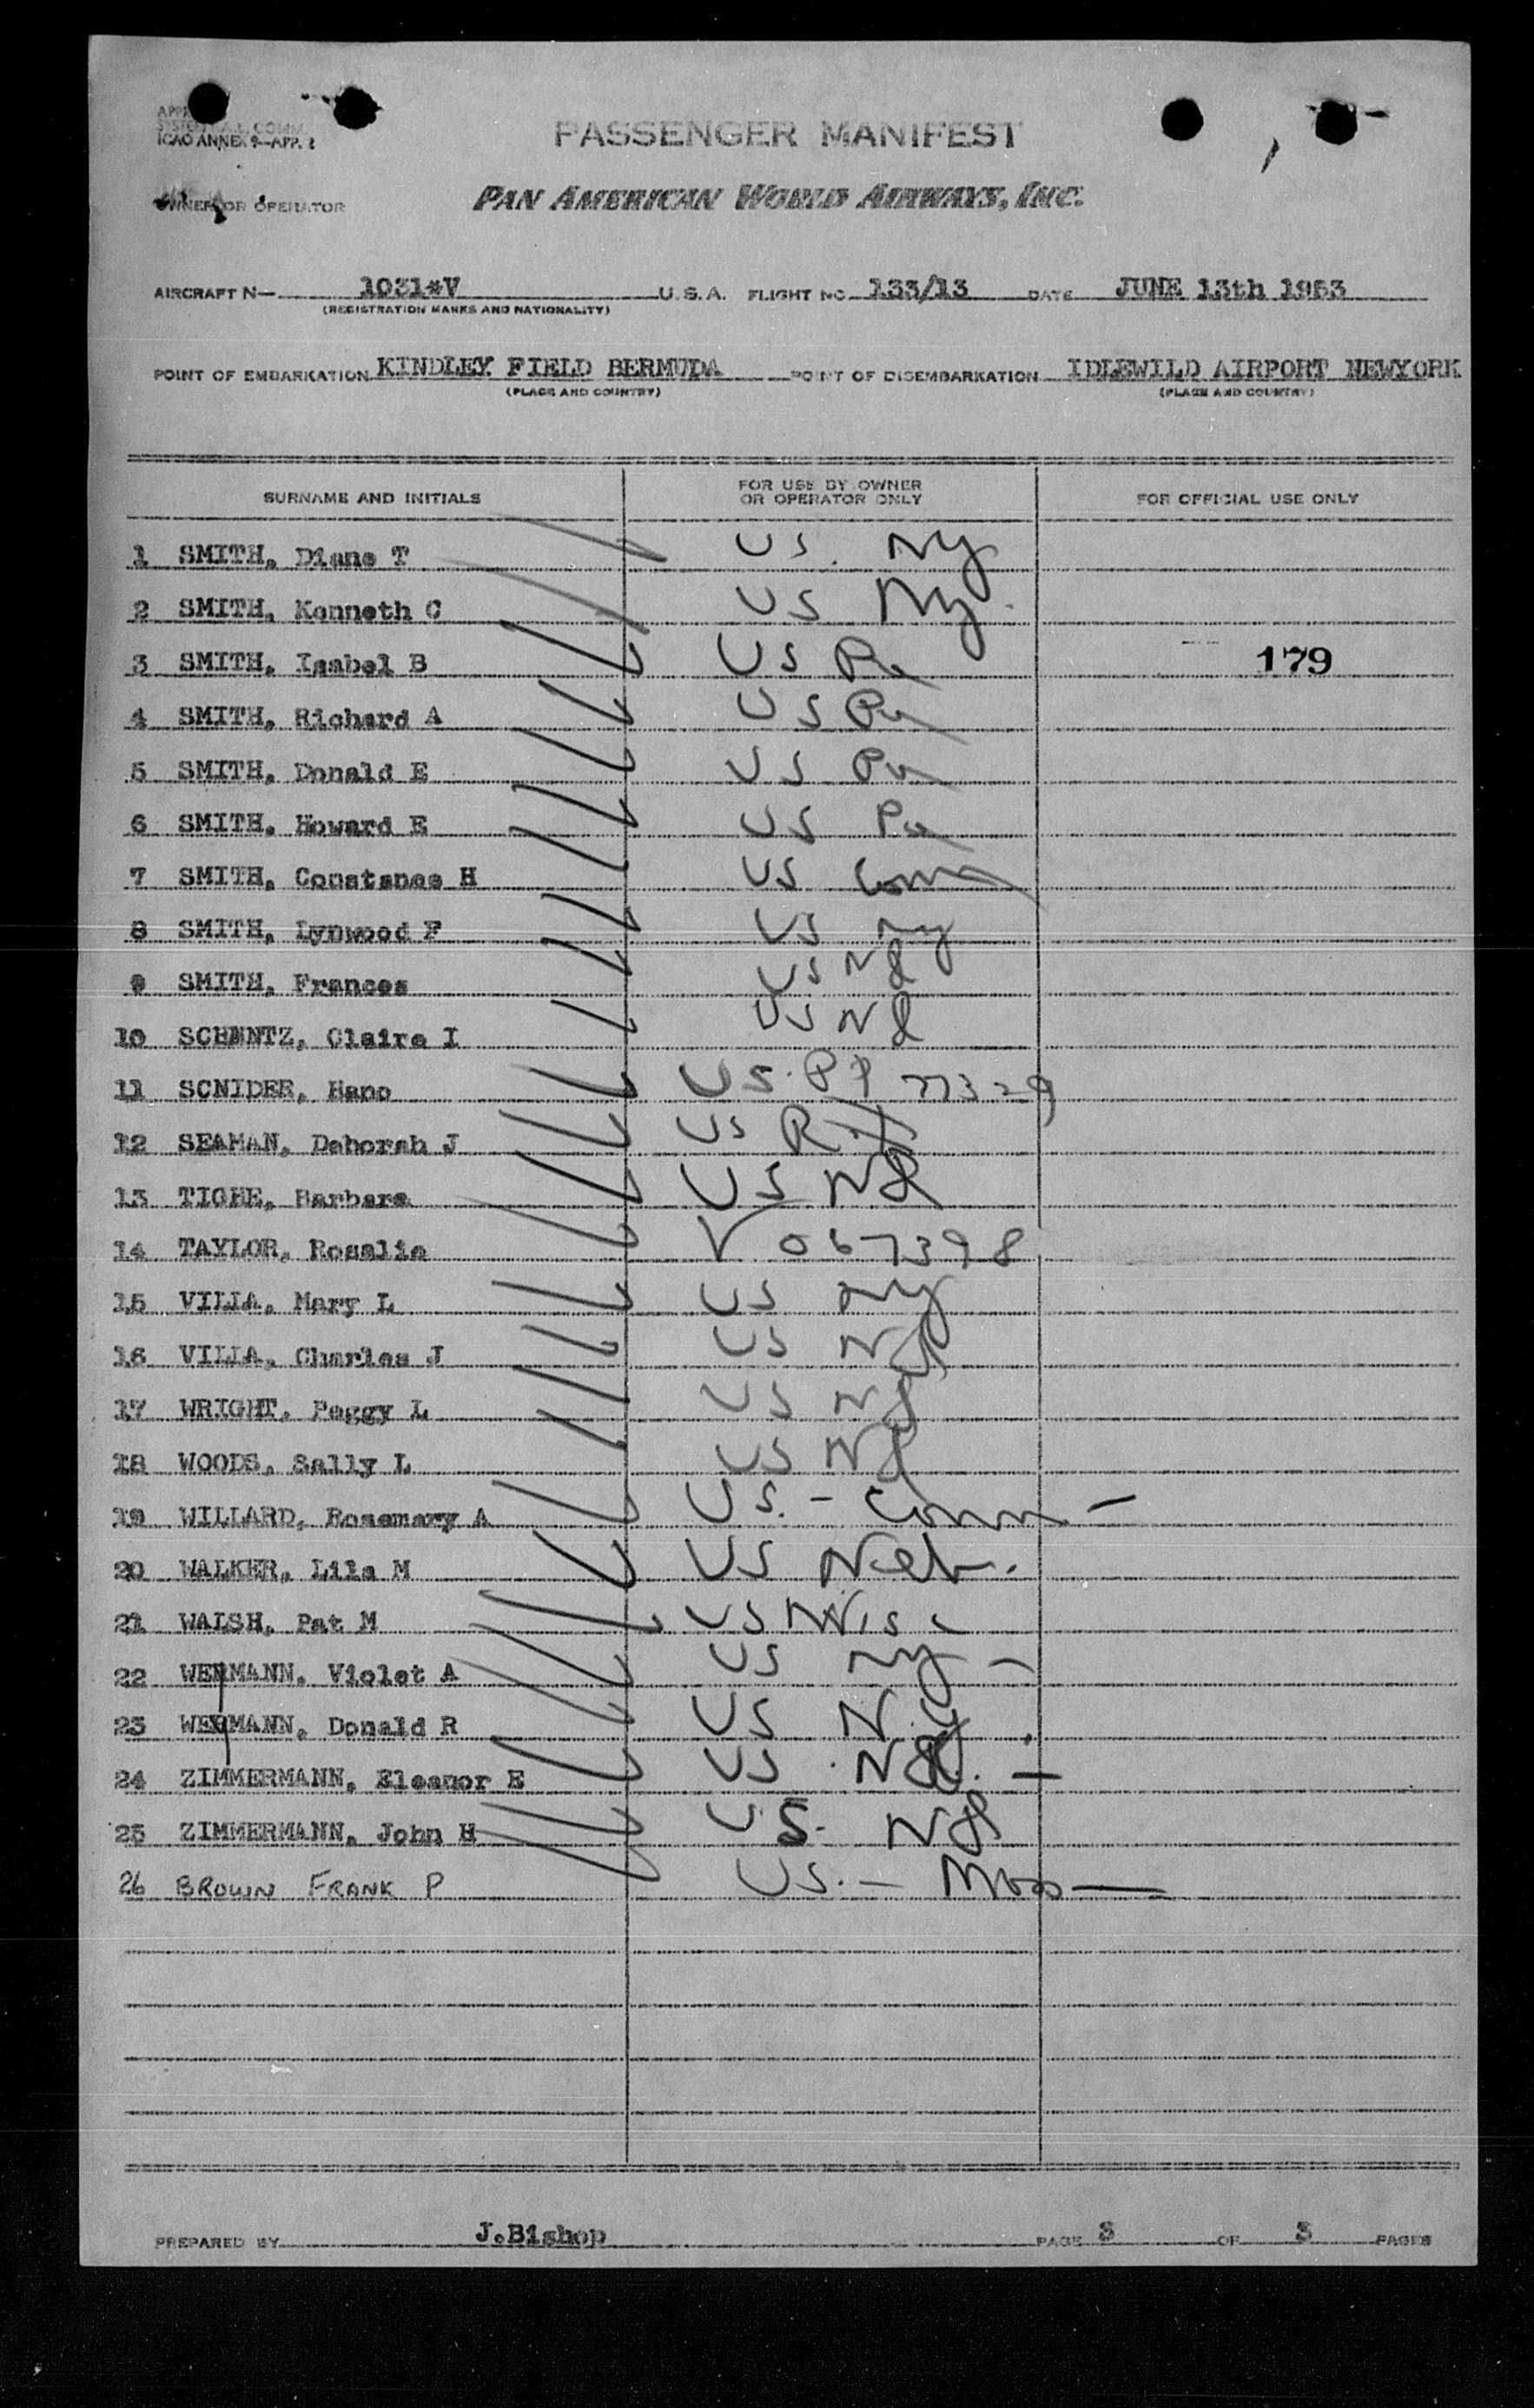 ICAO ANNEX 9—APP. 2
PASSENGER MANIFEST
OWNER OR OPERATOR PAN AMERICAN WORLD AIRWAYS, INC.
AIRCRAFT N— 1031*V U.S.A. FLIGHT NO 133/13 DATE JUNE 13th 1953
(REGISTRATION MARKS AND NATIONALITY)
POINT OF EMBARKATION KINDLEY FIELD BERMUDA POINT OF DISEMBARKATION IDLEWILD AIRPORT NEWYORK
(PLACE AND COUNTRY) (PLACE AND COUNTRY)
SURNAME AND INITIALS FOR USE BY OWNER OR OPERATOR ONLY FOR OFFICIAL USE ONLY
1 SMITH, Diane T US. Ny
2 SMITH, Kenneth C US Ny.
3 SMITH, Isabel B US Pa 179
4 SMITH, Richard A US Pa
5 SMITH, Donald E US Pa
6 SMITH, Howard E US Pa
7 SMITH, Constance H US Conn
8 SMITH, Lynwood F US ny
9 SMITH, Frances US NJ
10 SCHMNTZ, Claire I US NJ
11 SCNIDER, Hano US. PP 77329
12 SEAMAN, Deborah J US
13 TIGHE, Barbara US NJ
14 TAYLOR, Rosalie V 067398
15 VILIA, Mary L US ny
16 VILIA, Charles J US NY
17 WRIGHT, Peggy L US NJ
18 WOODS, Sally L US NJ
19 WILLARD, Rosemary A US. - Conn —
20 WALKER, Lila M US Neb.
21 WALSH, Pat M US Wis
22 WEHMANN, Violet A US ny —
23 WEHMANN, Donald R US N.Y
24 ZIMMERMANN, Eleanor E US . NJ. —
25 ZIMMERMANN, John H US. NJ
26 BROWN FRANK P US. — Mass —
PREPARED BY J.Bishop PAGE 3 OF 3 PAGES